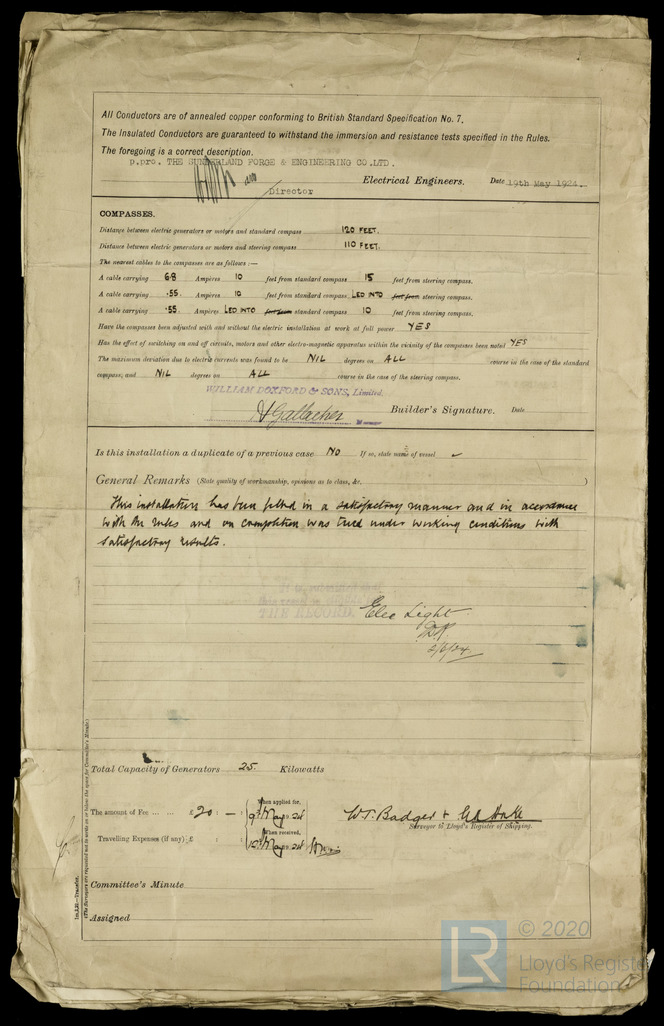 All Conductors are of annealed copper conforming to British Standard Specification No. 7.
The Insulated Conductors are guaranteed to withstand the immersion and resistance tests specified in the Rules.
The foregoing is a correct description.
p.pro. THE SUNDERLAND FORGE & ENGINEERING CO.LTD.
Electrical Engineers. Date 19th May 1924.
Director
COMPASSES.
Distance between electric generators or motors and standard compass 120 FEET.
Distance between electric generators or motors and steering compass 110 FEET.
The nearest cables to the compasses are as follows :—
A cable carrying 6.8 Ampères 10 feet from standard compass 15 feet from steering compass.
A cable carrying .55 Ampères 10 feet from standard compass LED INTO feet from steering compass.
A cable carrying .55 Ampères LED INTO feet from standard compass 10 feet from steering compass.
Have the compasses been adjusted with and without the electric installation at work at full power YES
Has the effect of switching on and off circuits, motors and other electro-magnetic apparatus within the vicinity of the compasses been noted YES
The maximum deviation due to electric currents was found to be NIL degrees on ALL course in the case of the standard
compass, and NIL degrees on ALL course in the case of the steering compass.
WILLIAM DOXFORD & SONS, Limited
A Gallacher Builder's Signature. Date
Is this installation a duplicate of a previous case NO If so, state name of vessel
General Remarks (State quality of workmanship, opinions as to class, &c. )
This installation has been fitted in a satisfactory manner and in accordance
with the rules and on completion was tried under working conditions with
satisfactory results.
THE RECORD. Elec Light
2/6/24
Total Capacity of Generators 25. Kilowatts
The amount of Fee ... ... £ 20 : — :
When applied for,
9th May 24
When received,
Travelling Expenses (if any) £ : :
W.T. Badger &
Surveyor to Lloyd's Register of Shipping.
Committee's Minute
Assigned
1m.2.20.—Transfer.
(The Surveyors are requested not to write on or below the space for Committee's Minute.)
LR
© 2020
Lloyd's Register
Foundation